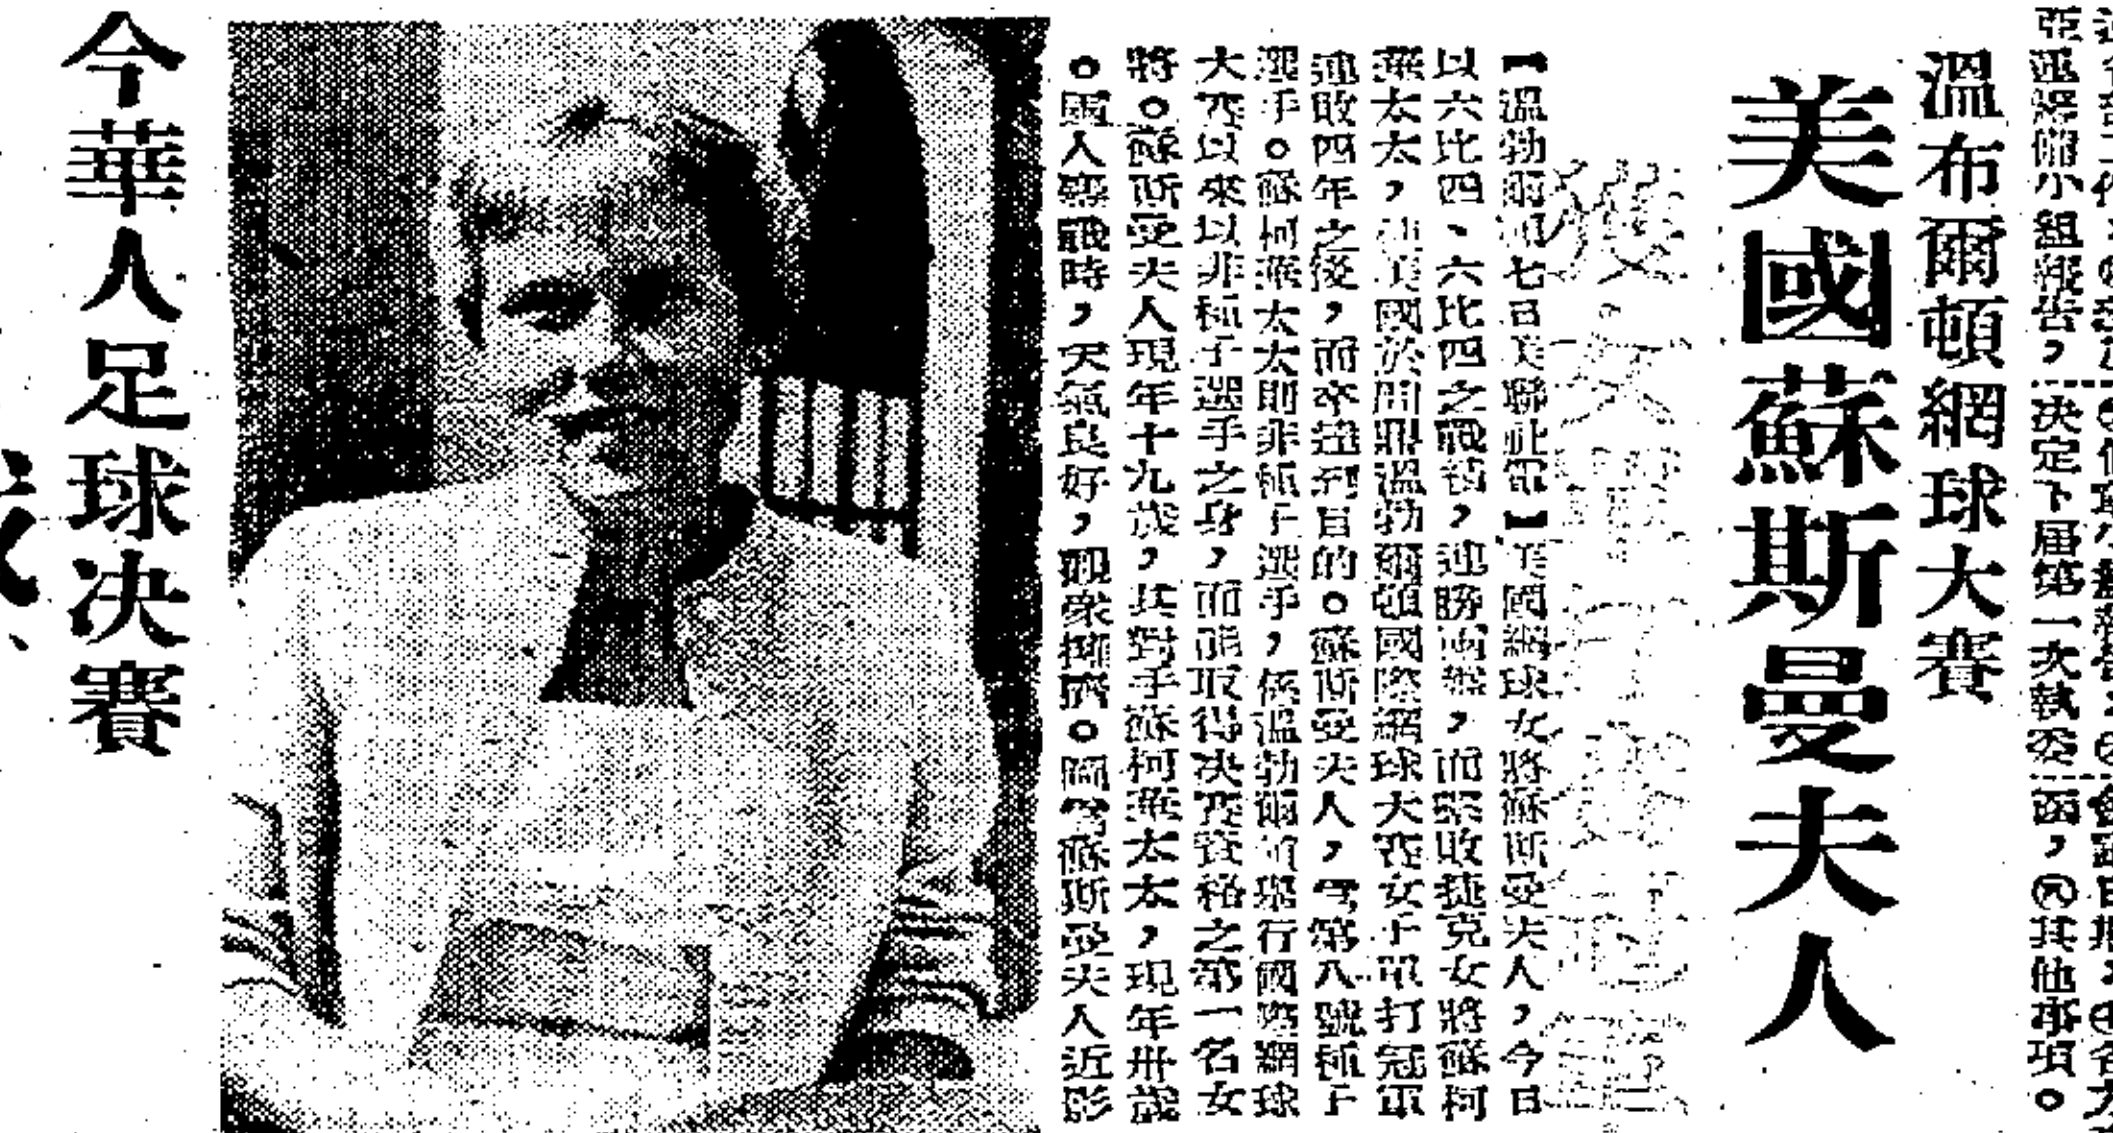 決定下届第一次執委
函，㈥其他事項。
溫布爾頓網球大賽
美國蘇斯曼夫人
獲女單冠軍
【溫勃爾頓七日美聯社電】美國網球女將蘇斯曼夫人，今日
以六比四、六比四之戰績，連勝兩盤，而擊敗捷克女將蘇柯
華太太，使美國於問鼎溫勃爾頓國際網球大賽女子單打冠軍
連敗四年之後，而卒達到目的。蘇斯曼夫人，為第八號種子
選手。蘇柯華太太則非種子選手，係溫勃爾頓舉行國際網球
大賽以來以非種子選手之身，而能取得决賽資格之第一名女
將。蘇斯曼夫人現年十九歲，其對手蘇柯華太太，現年卅歲
。兩人鏖戰時，天氣良好，觀衆擁擠。圖為蘇斯曼夫人近影
今華人足球决賽